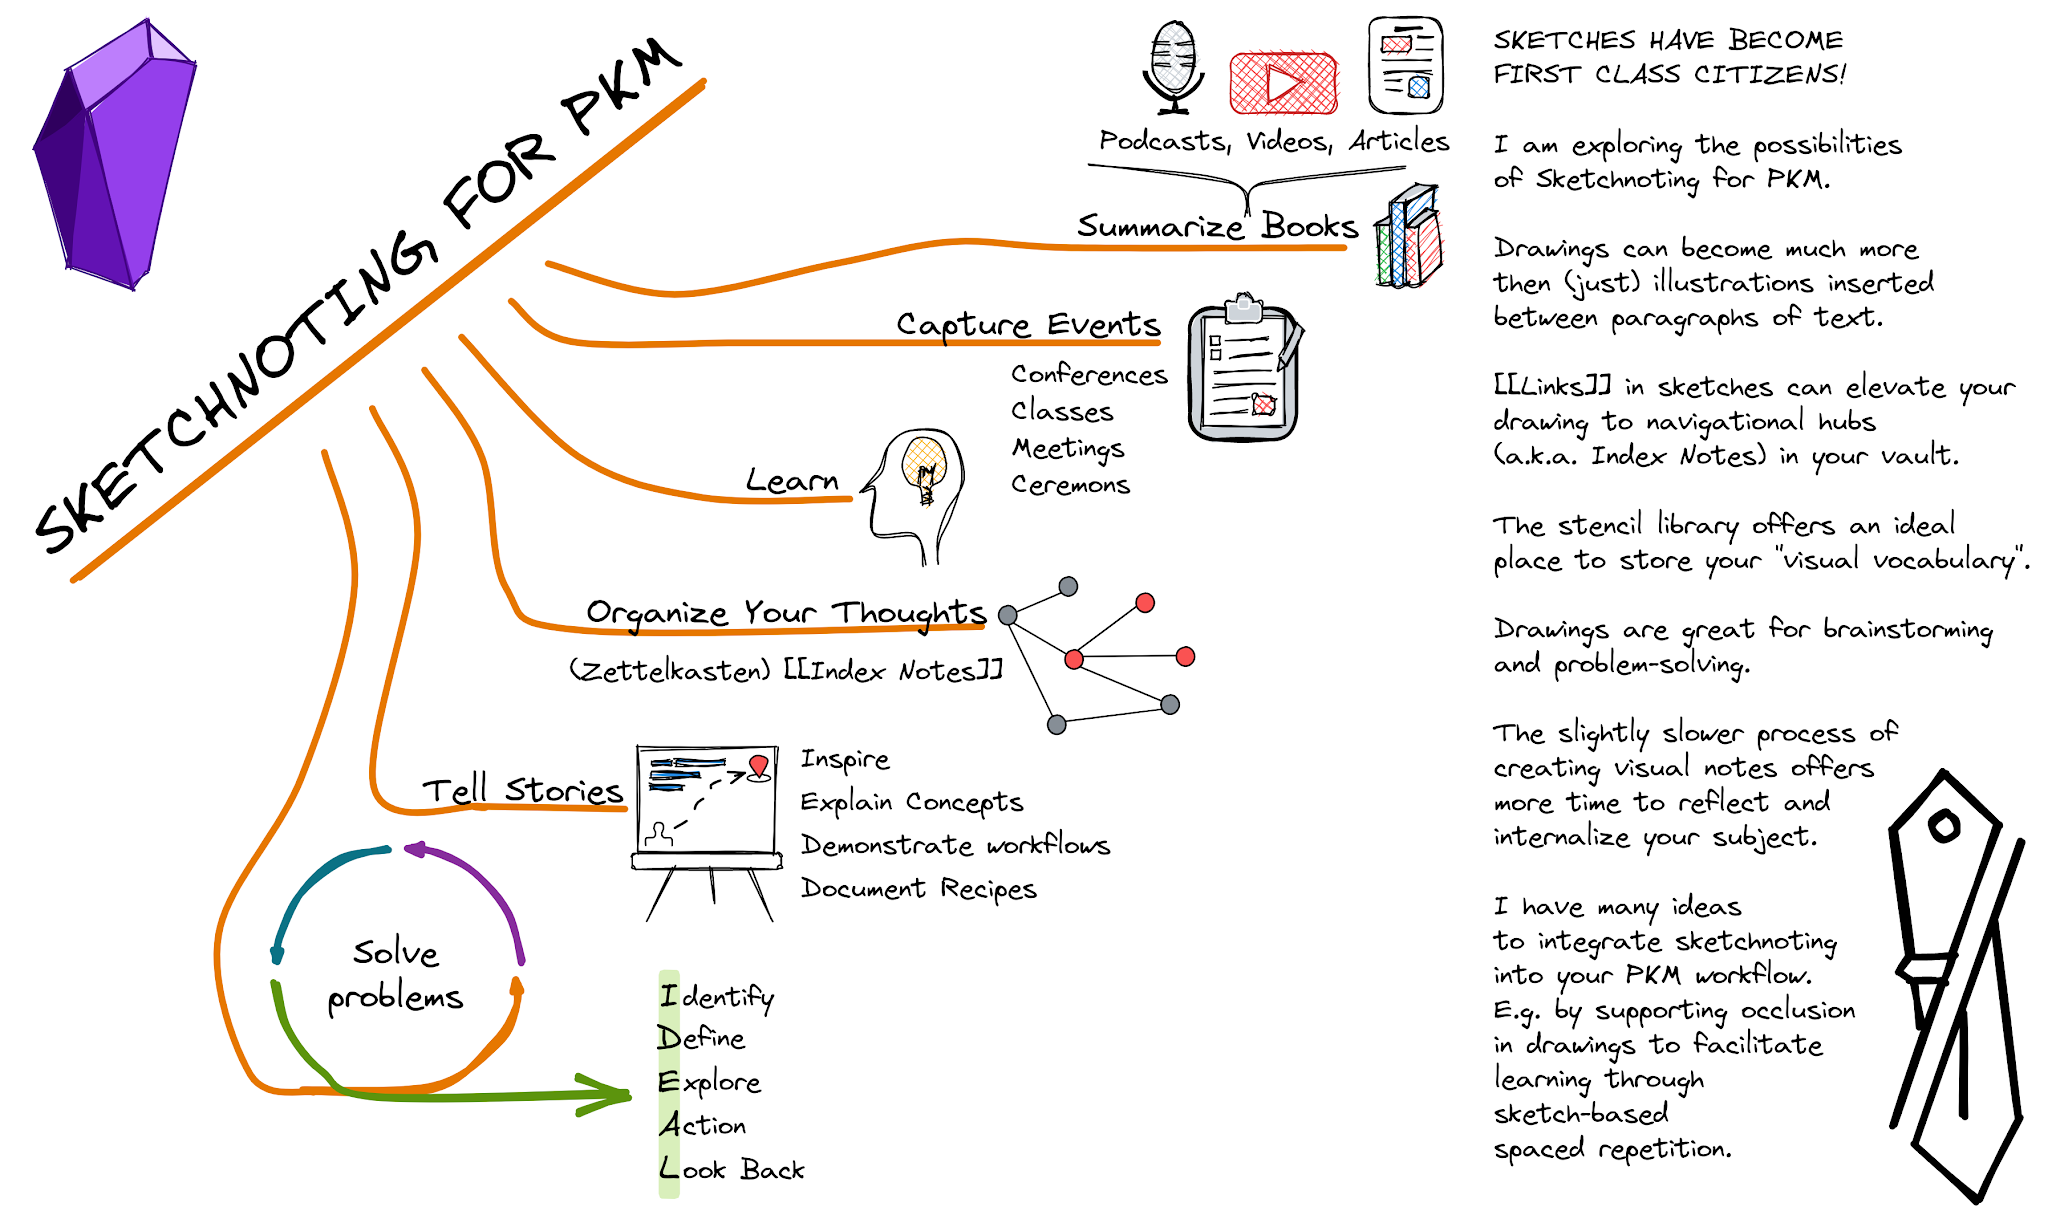 SKETCHNOTING FOR PKM
Podcasts, Videos, Articles
Summarize Books
Capture Events
Conferences
Classes
Meetings
Ceremons
Learn
Organize Your Thoughts
(Zettelkasten) [[Index Notes]]
Tell Stories
Inspire
Explain Concepts
Demonstrate workflows
Document Recipes
Solve
problems
Identify
Define
Explore
Action
Look Back
SKETCHES HAVE BECOME
FIRST CLASS CITIZENS!
I am exploring the possibilities
of Sketchnoting for PKM.
Drawings can become much more
then (just) illustrations inserted
between paragraphs of text.
[[Links]] in sketches can elevate your
drawing to navigational hubs
(a.k.a. Index Notes) in your vault.
The stencil library offers an ideal
place to store your "visual vocabulary".
Drawings are great for brainstorming
and problem-solving.
The slightly slower process of
creating visual notes offers
more time to reflect and
internalize your subject.
I have many ideas
to integrate sketchnoting
into your PKM workflow.
E.g. by supporting occlusion
in drawings to facilitate
learning through
sketch-based
spaced repetition.